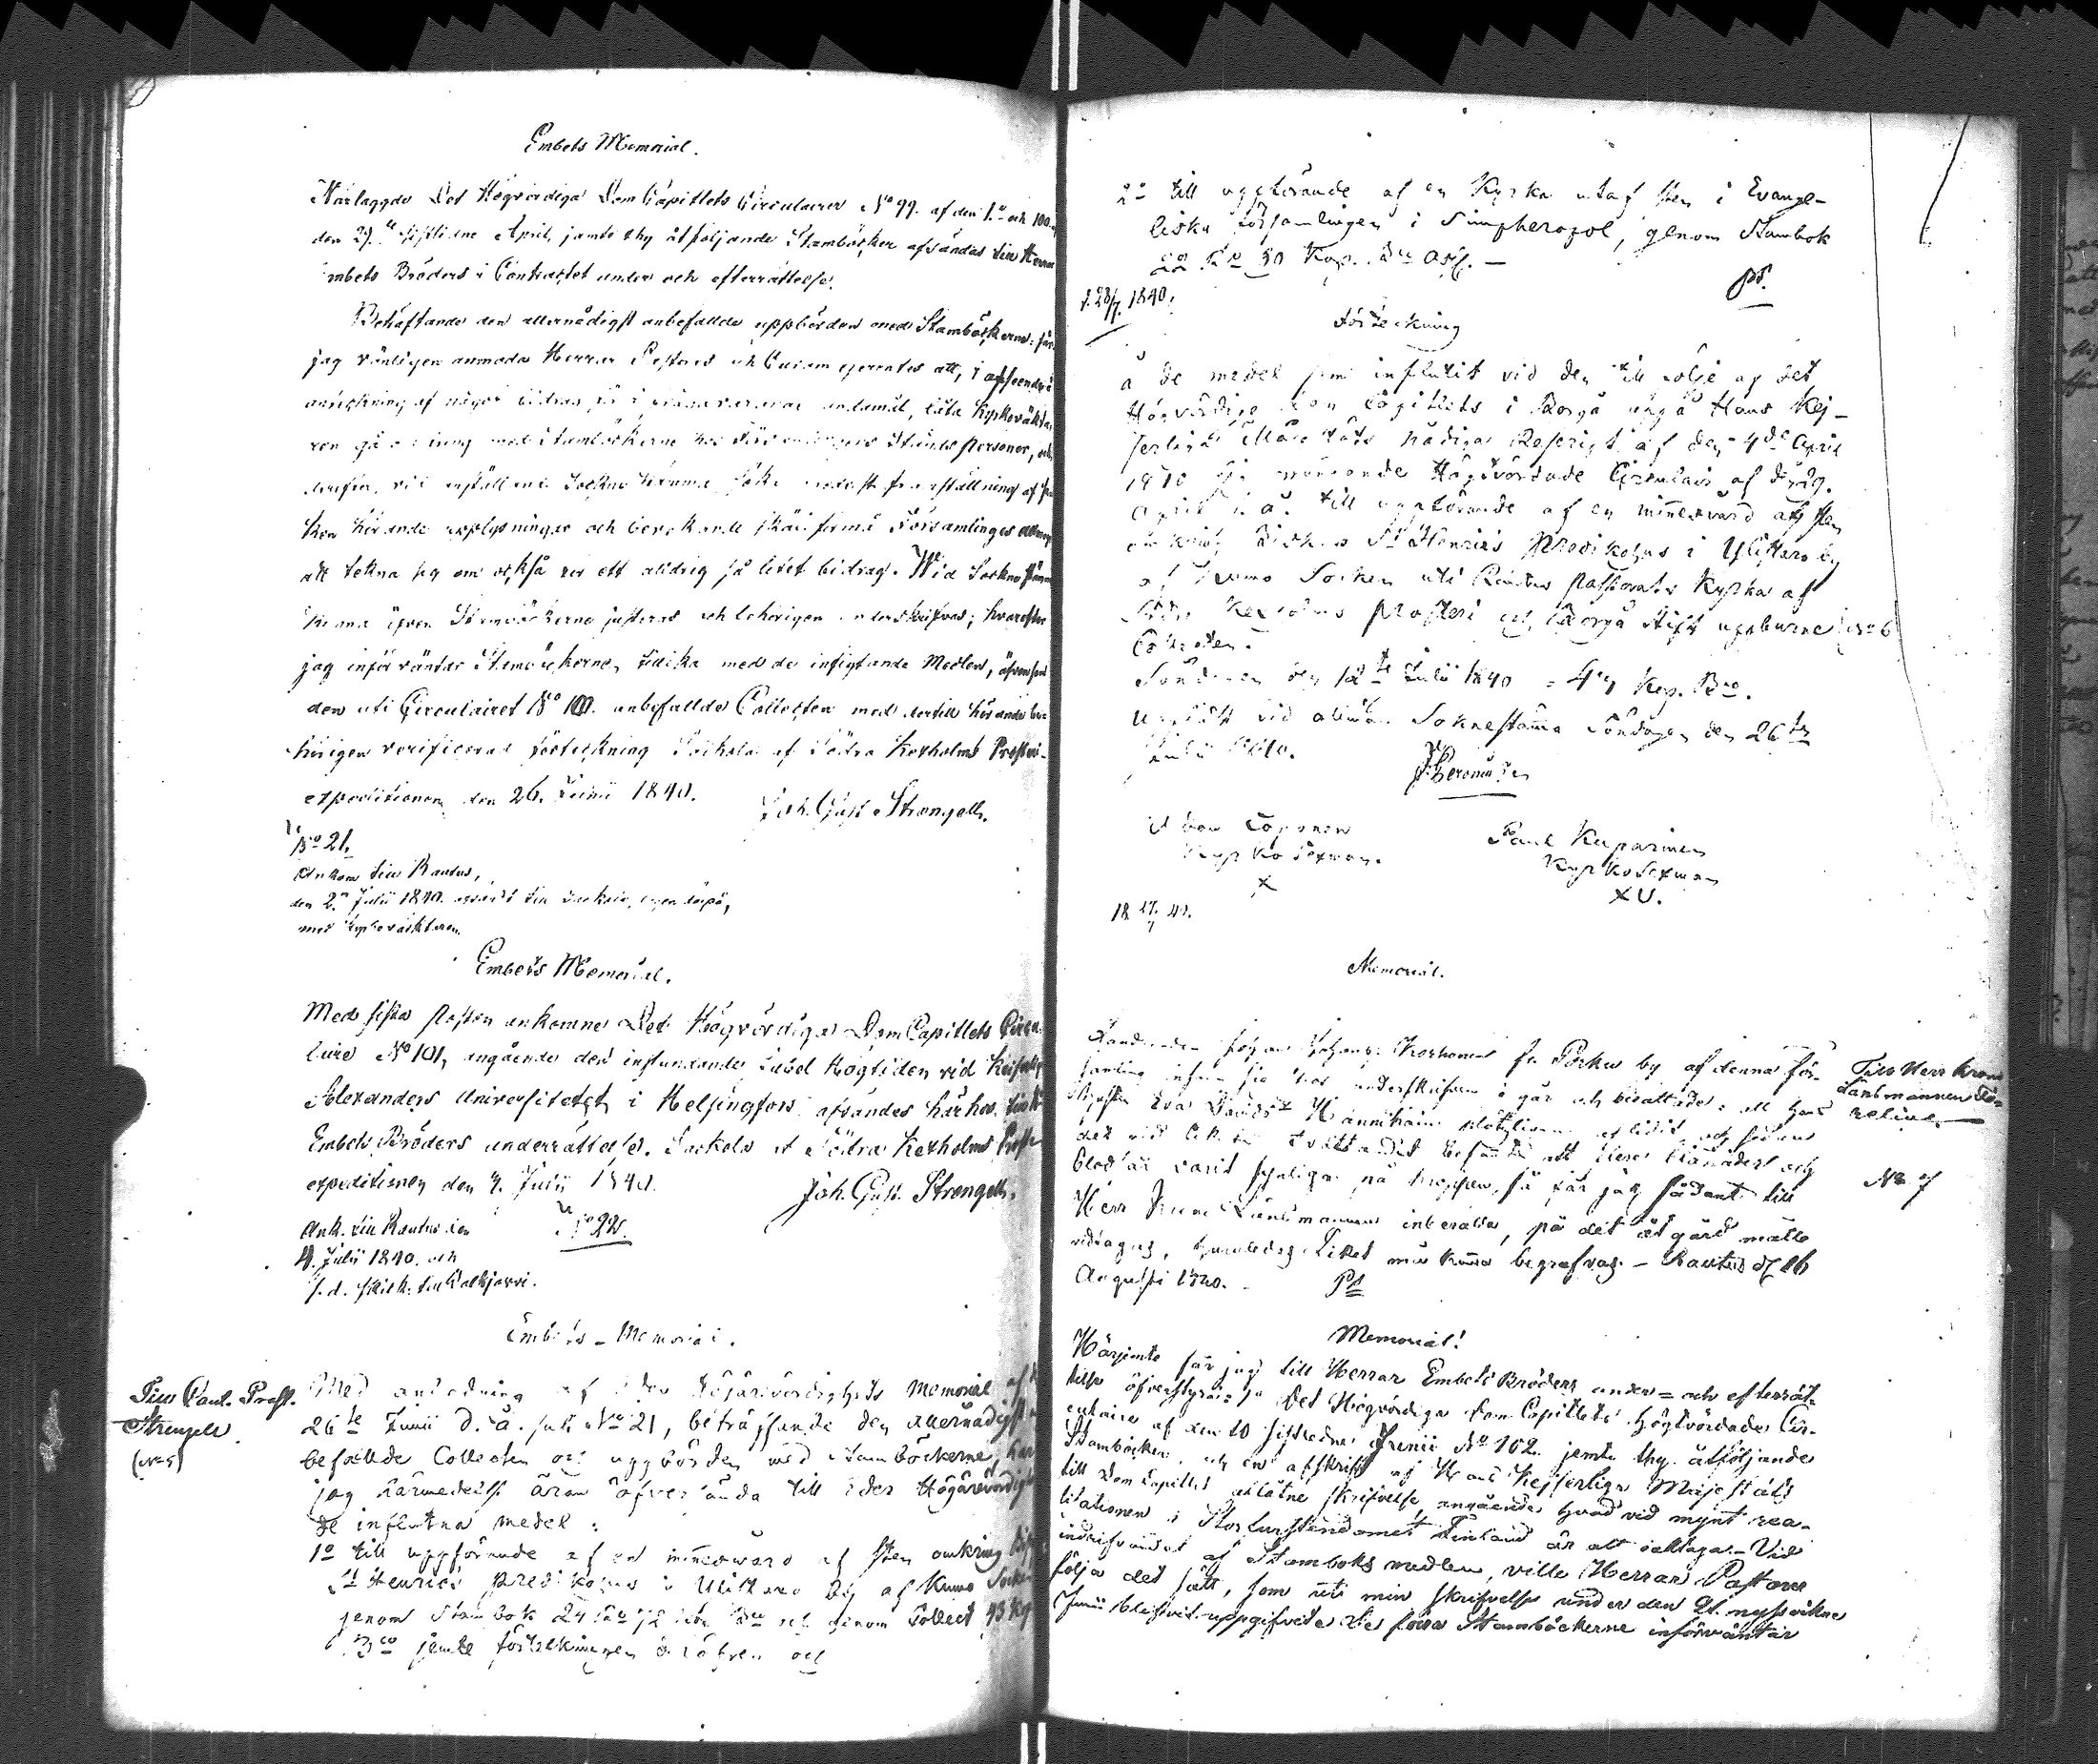 Embets Memorial.
Närlaggde Det Högvördiga Dom Capitlets Circulairer No 99. af den 1.a och 100.
den 29. sistlidne April, jamte thy åtföljande Stamböcker afsändas till Herrar
Embets Bröders i Contractet under och efterrättelse.
Behäftande den allernådigst anbefallde uppbörden med Stamböckerne: får
jag vänligen anmoda Herrar Pastores och Curam gerentes att, i afseende å
anskaffning af något bidrag för i ändamål, låta Kyrkoväkta
ren gå omkring med Stamböckerne hos Församlingens Stånds personer, och
derefter, vid anställande Sockne stämma söka medelst framställning af sa
ken hörande upplysningar och bevekande skäl förmå Församlingens allmog
att tekna sig om också för ett aldrig så litet bidrag. Wid Sockne stämm
orna äfven Stamböckerne justeras och behörigen underskrifvas; hvarefter
jag inför väntar Stamböckerne, tillika med de influtande Medlen, äfvensom
den uti Circulairet No 100. anbefallde Collecten med dertill hörande be-
hörigen verificerad förteckning Sackola af Södra Kexholms Prosteri-
expeditionen den 26. Junii 1840.
Joh. Gust. Strengell.
No 21.
Ankom till Rautus,
den 2. Julii 1840. afsänd till
med Kyrkoväktaren.
Embets Memorial.
Med sista posten ankomne Det Högvördiga Dom Capitlets Circu
laire No 101, angående den instundande Jubel Högtiden vid Kejserliga
Alexanders Universitetet i Helsingfors afsändes härhos till
Embets Bröders underrättelse. Sackola af Södra Kexholms Prost
expeditionen den 4. Julii 1840.
Joh. Gust. Strengell.
Ank. till Rautus den
No 22.
4. Julii 1840. och
s. d. skick. till Walkjärvi.
Embets-Memorial.
Till Cont. Prost.
Strengell.
(No 5)
Med anledning af Eder Högärevördighets Memorial af d
26te Junii d. å. sub No 21, beträffande den allernådigst
befallde Collecten och uppbörden med Stamböckerne, har
jag härmedelst äran öfversända till Eder Högärevördighet
de influtna medel:
1o till uppförande af en minnesvård af sten omkring Bisk
St Henrics predikohus i Ylistaro by af Kumo Socken
genom Stambok 24 och genom Collect 43 Kop
Bco jemte förtekningen öfver och
2o till uppförande af en Kyrka utaf sten i Evange-
liska församlingen i Simpheropol, genom Stambok
22 50 Kop. Bco Ass. —
d. 28/7 1840.
PS.
Förteckning
å de medel som influtit vid den till följe af det
Högvördige Dom Capitlets i Borgå ingå Hans Kej-
serliga Majestäts nådiga Rescript af den 4de April
1840 Högtvördade Circulair af d. 29.
April s. å. till uppförande af en minnesvård af sten
omkring Biskop St Henrics predikohus i Ylistaro by
af Kumo Socken uti Rautus Pastorats Kyrka af
Södra Kexholms prosteri och Borgå Stift uppburne
No 6
Collecten.
Söndagen den 12te Julii 1840 = 43 Kop. Bco.
Uppläst vid allmän Soknestämma Söndagen den 26te
Julii 1840.
Kyrko Sexman.
x
Paul Kuparinen
Kyrko Sexman
XU.
18 27/7 40.
Memorial.
Till Herr Krono
Länsmannen
No 7
Bonden Johan Korhonen fr. Pörkus by af denna för-
samling infann sig hos underskrifven i går och berättade: att hans
Hustru Eva Davids dr Hännikäin plötsligen aflidit och sedan
det vid likets tvättandet befunnits att flere blånader och
blod är varit synliga på kroppen, så får jag sådant till
Herr Krono Länsmannen inberätta, på det åtgärd måtte
vidtagas, huruledes Liket må kunna begrafvas. - Rautus d. 16
Augusti 1840.
PS
Memorial!
Härjemte får jag till Herrar Embets Bröders under- och efterrät-
telse öfverstyra: Det Högvördiga Dom Capitlets Högtvördade Cir-
culaire af den 10 sistledne Junii No 102. jemte thy åtföljande
Stamböcker, och en afskrift af Hans Kejserliga Majestäts
till Dom Capitlet aflåtne skrifvelse, angående hvad vid mynt rea-
lisationen i Storfurstendömet Finland är att iakttaga. - Vid
indrifvandet af Stamboks medlen, ville Herrar Pastorer
följa det sätt, som uti min skrifvelse under den 26. nyssvikne
Junii blifvit uppgifvit. De förra Stamböckerne införväntar